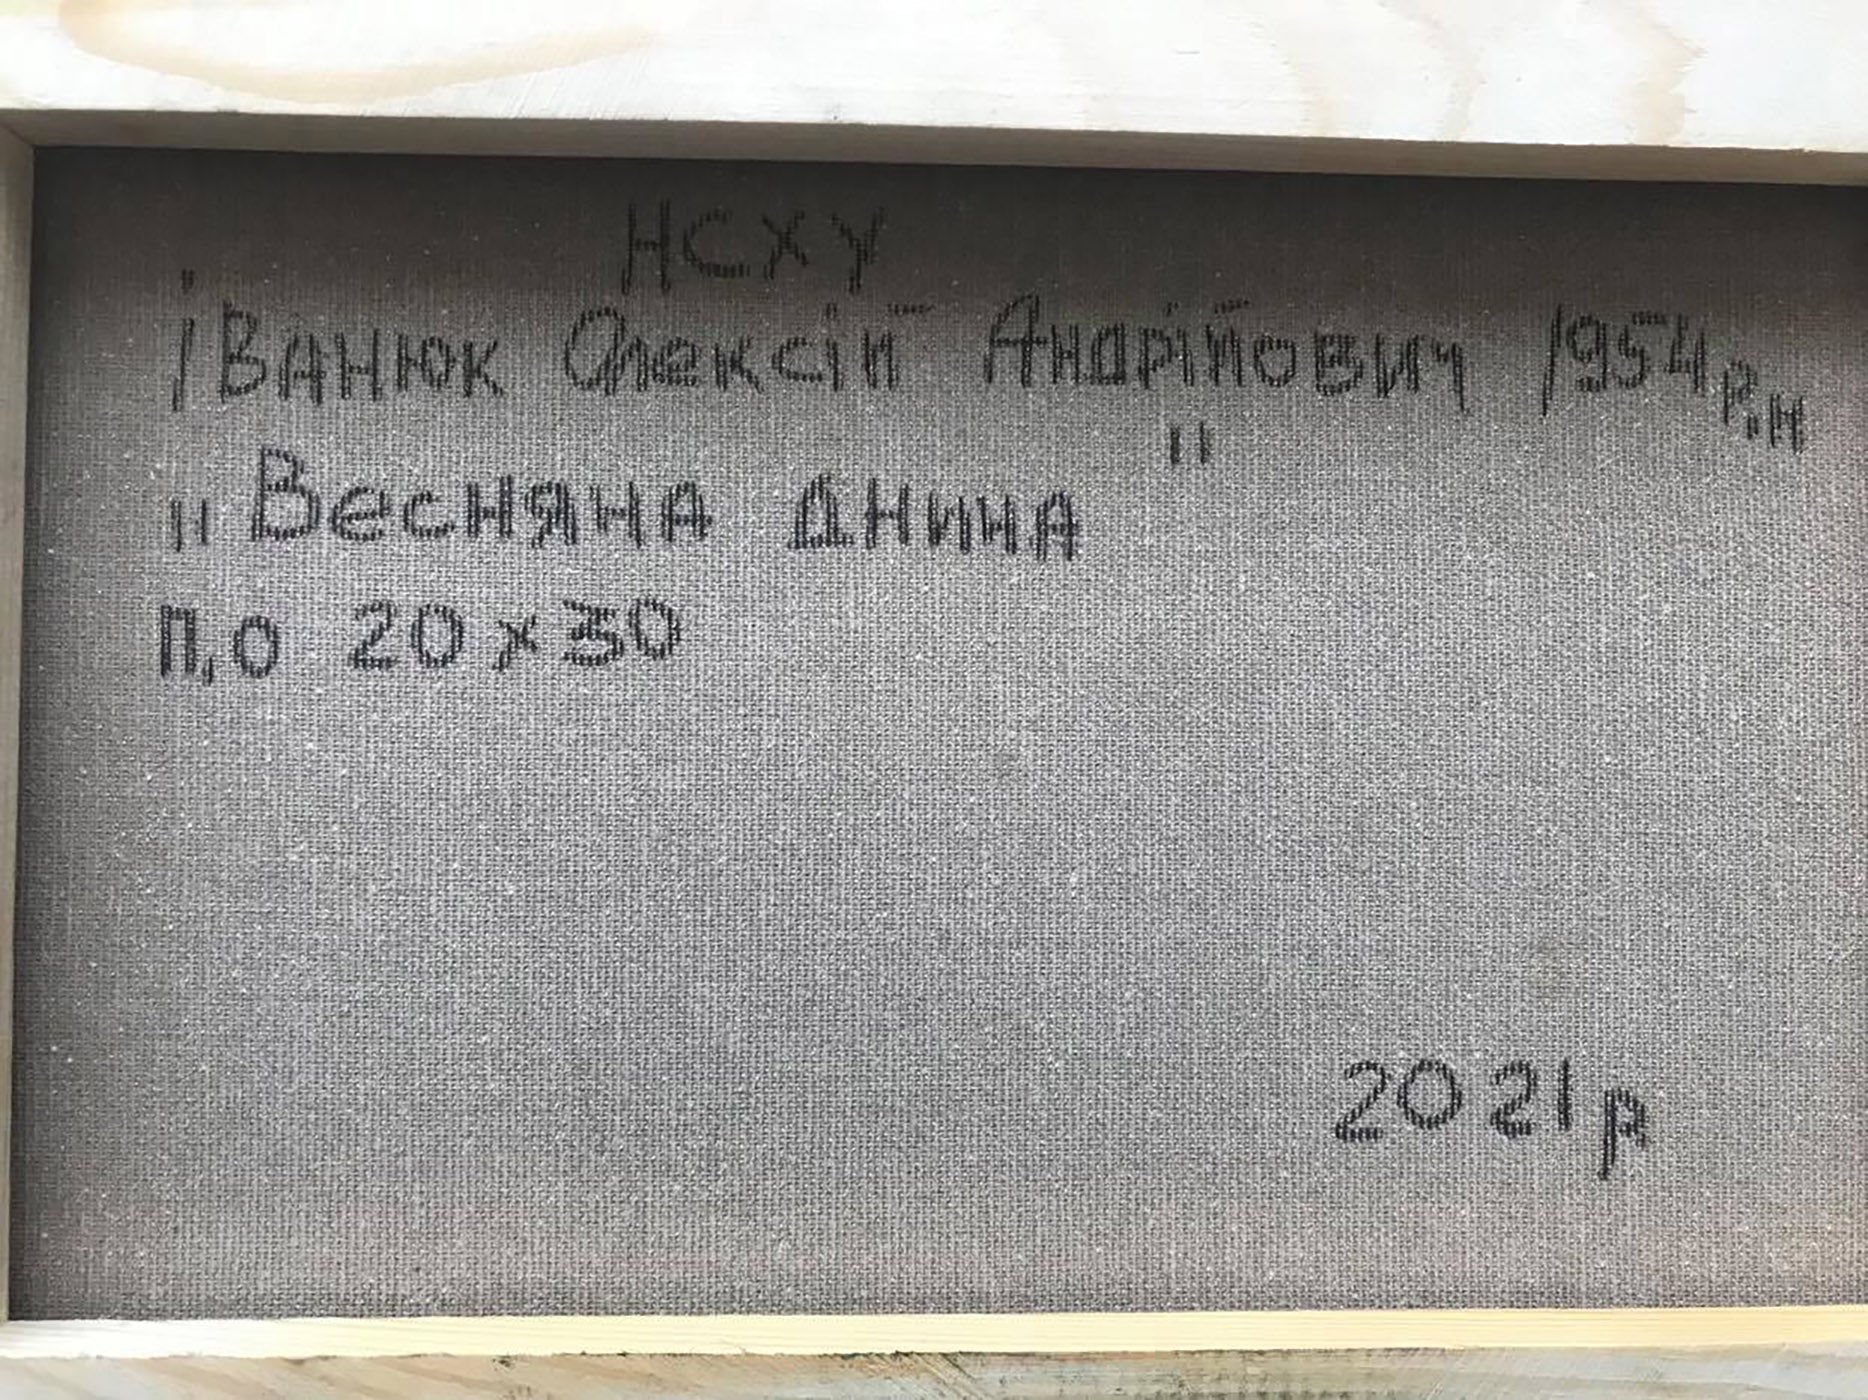 НСХУ
Іванюк Олексій Андрійович 1954р.н
"Весняна днина"
П,О 20х30
2021р